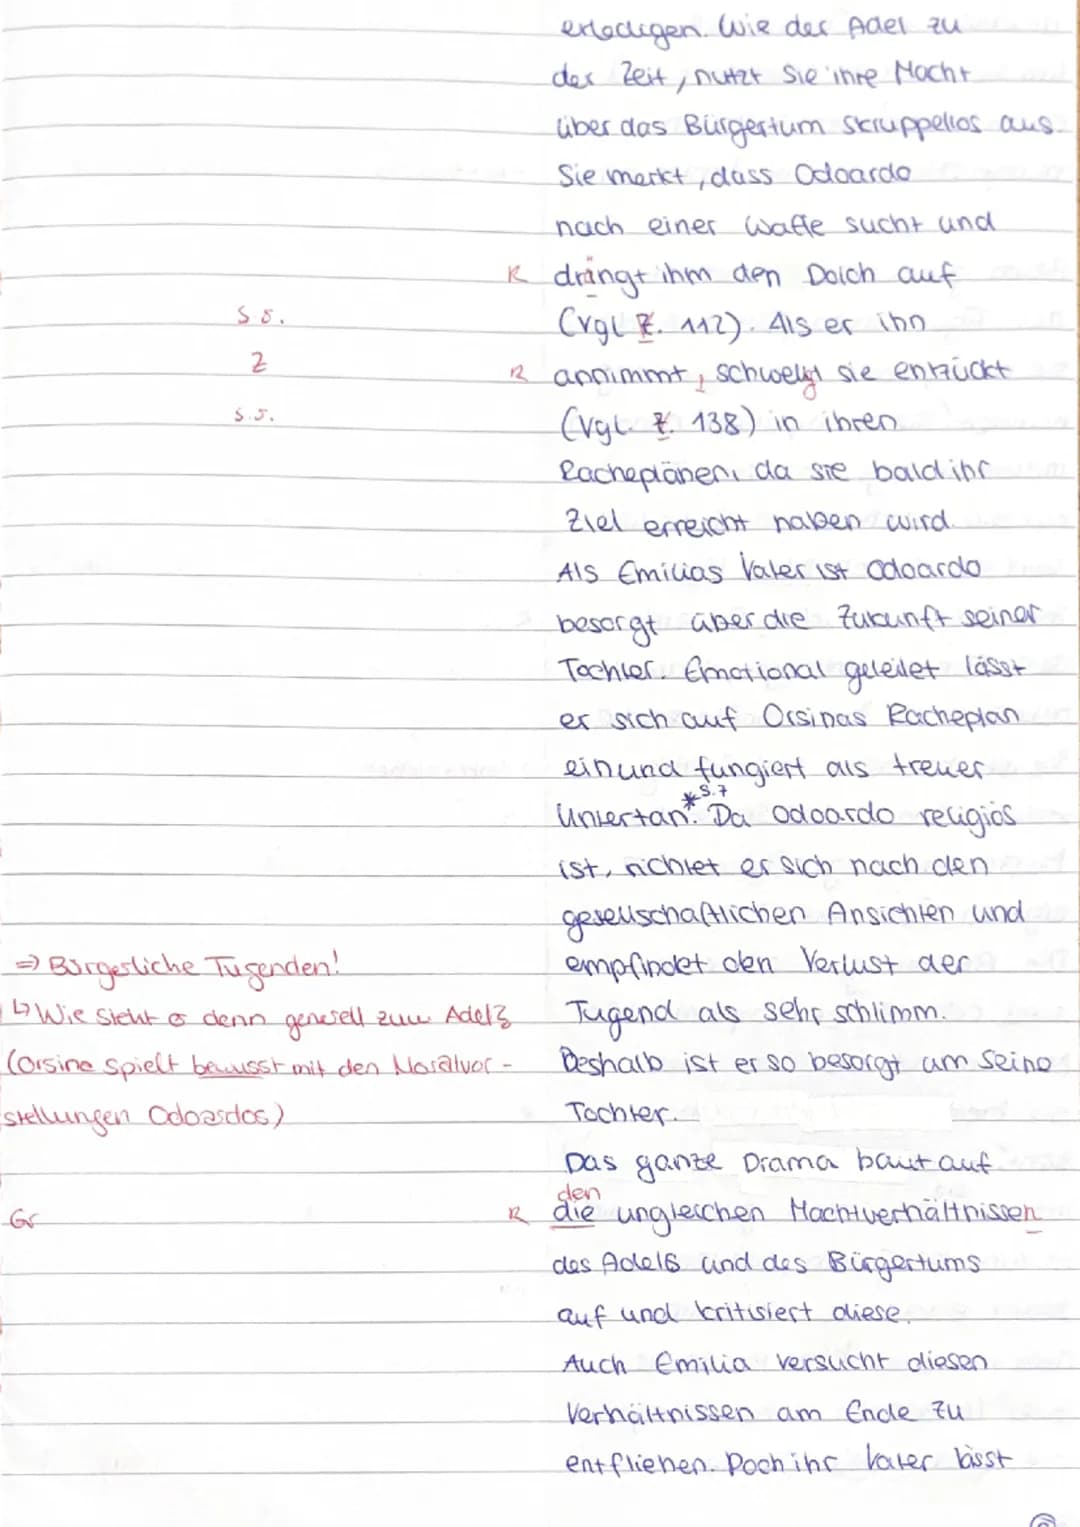 erledigen. Wie der Adel zu
der Zeit, nutzt sie ihre Macht
über das Bürgertum skruppellos aus.
Sie merkt, dass Odoardo
nach einer Waffe sucht und
R drängt ihm den Dolch auf
s.o. (vgl Z. 112). Als er ihn
Z R annimmt, schwelgt sie entzückt
s.o. (vgl. Z. 138) in ihren
Racheplänen, da sie bald ihr
Ziel erreicht haben wird.
Als Emilias Vater ist Odoardo
besorgt über die Zukunft seiner
Tochter. Emotional geleitet lässt
er sich auf Orsinas Racheplan
ein und fungiert als treuer
*S.7
Untertan. Da Odoardo religiös
ist, richtet er sich nach den
gesellschaftlichen Ansichten und
=> Bürgerliche Tugenden! empfindet den Verlust der
↳ Wie steht er denn generell zum Adel? Tugend als sehr schlimm.
(Orsina spielt bewusst mit den Moralvor- Deshalb ist er so besorgt um seine
stellungen Odoardos) Tochter.
Das ganze Drama baut auf
den
Gr R die ungleichen Machtverhältnissen
des Adels und des Bürgertums
auf und kritisiert diese.
Auch Emilia versucht diesen
Verhältnissen am Ende zu
entfliehen. Doch ihr Vater lässt